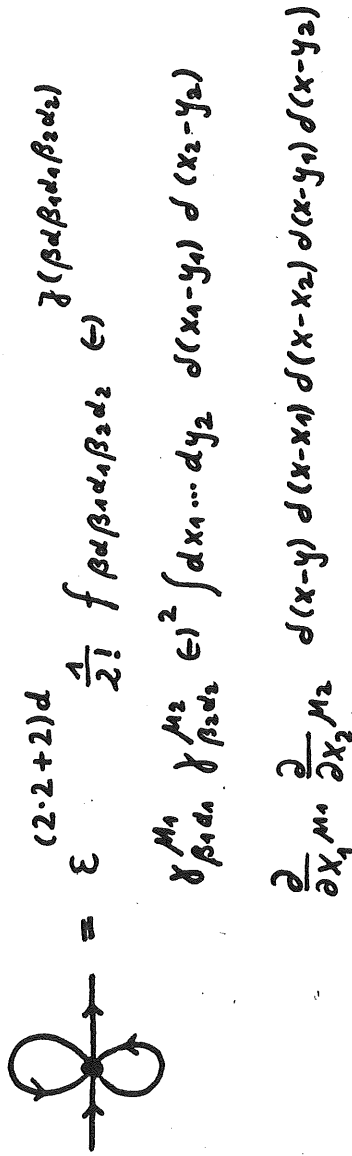 = ε^{(2·2+2)d} \frac{1}{2!} f_{βαβ₁α₁β₂α₂} (-)^{γ(βαβ₁α₁β₂α₂)}
γ^{μ₁}_{β₁α₁} γ^{μ₂}_{β₂α₂} (-)² ∫ dx₁ ··· dy₂ δ(x₁-y₁) δ(x₂-y₂)
\frac{∂}{∂x₁^{μ₁}} \frac{∂}{∂x₂^{μ₂}} δ(x-y) δ(x-x₁) δ(x-x₂) δ(x-y₁) δ(x-y₂)